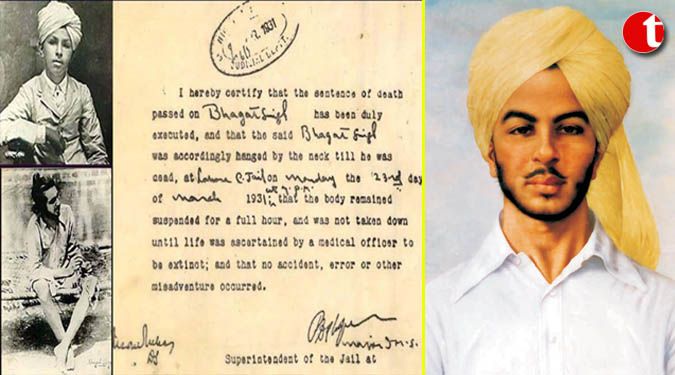 1931
I hereby certify that the sentence of death
passed on Bhagat Singh has been duly
executed, and that the said Bhagat Singh
was accordingly hanged by the neck till he was
dead, at Lahore C. Jail on Monday the 23rd day
of March 1931 at P.M. that the body remained
suspended for a full hour, and was not taken down
until life was ascertained by a medical officer to
be extinct; and that no accident, error or other
misadventure occurred.
Major I.M.S.
Superintendent of the Jail at
t